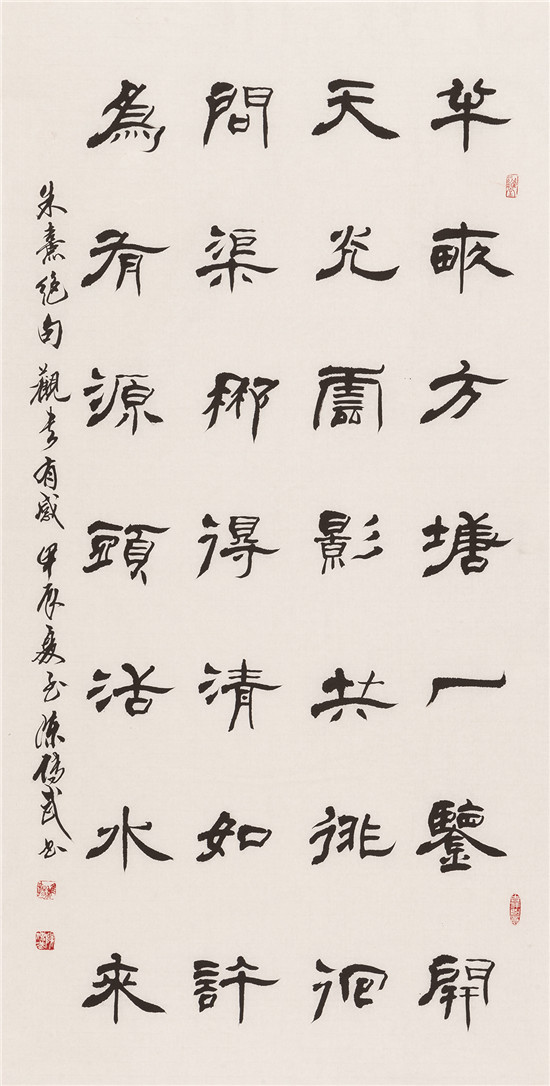 半畝方塘一鑒開
天光雲影共徘徊
問渠那得清如許
為有源頭活水來
朱熹绝句觀书有感甲辰夏至陈傳武书